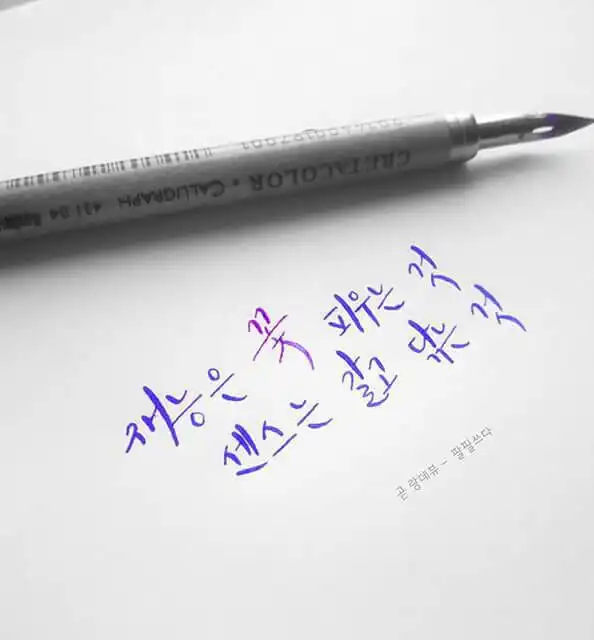 CRETACOLOR • CALLIGRAPH 431 04
재능은 꽃 피우는 것
센스는 갈고 닦는 것
곧 랑데뷰 - 팔필쓰다